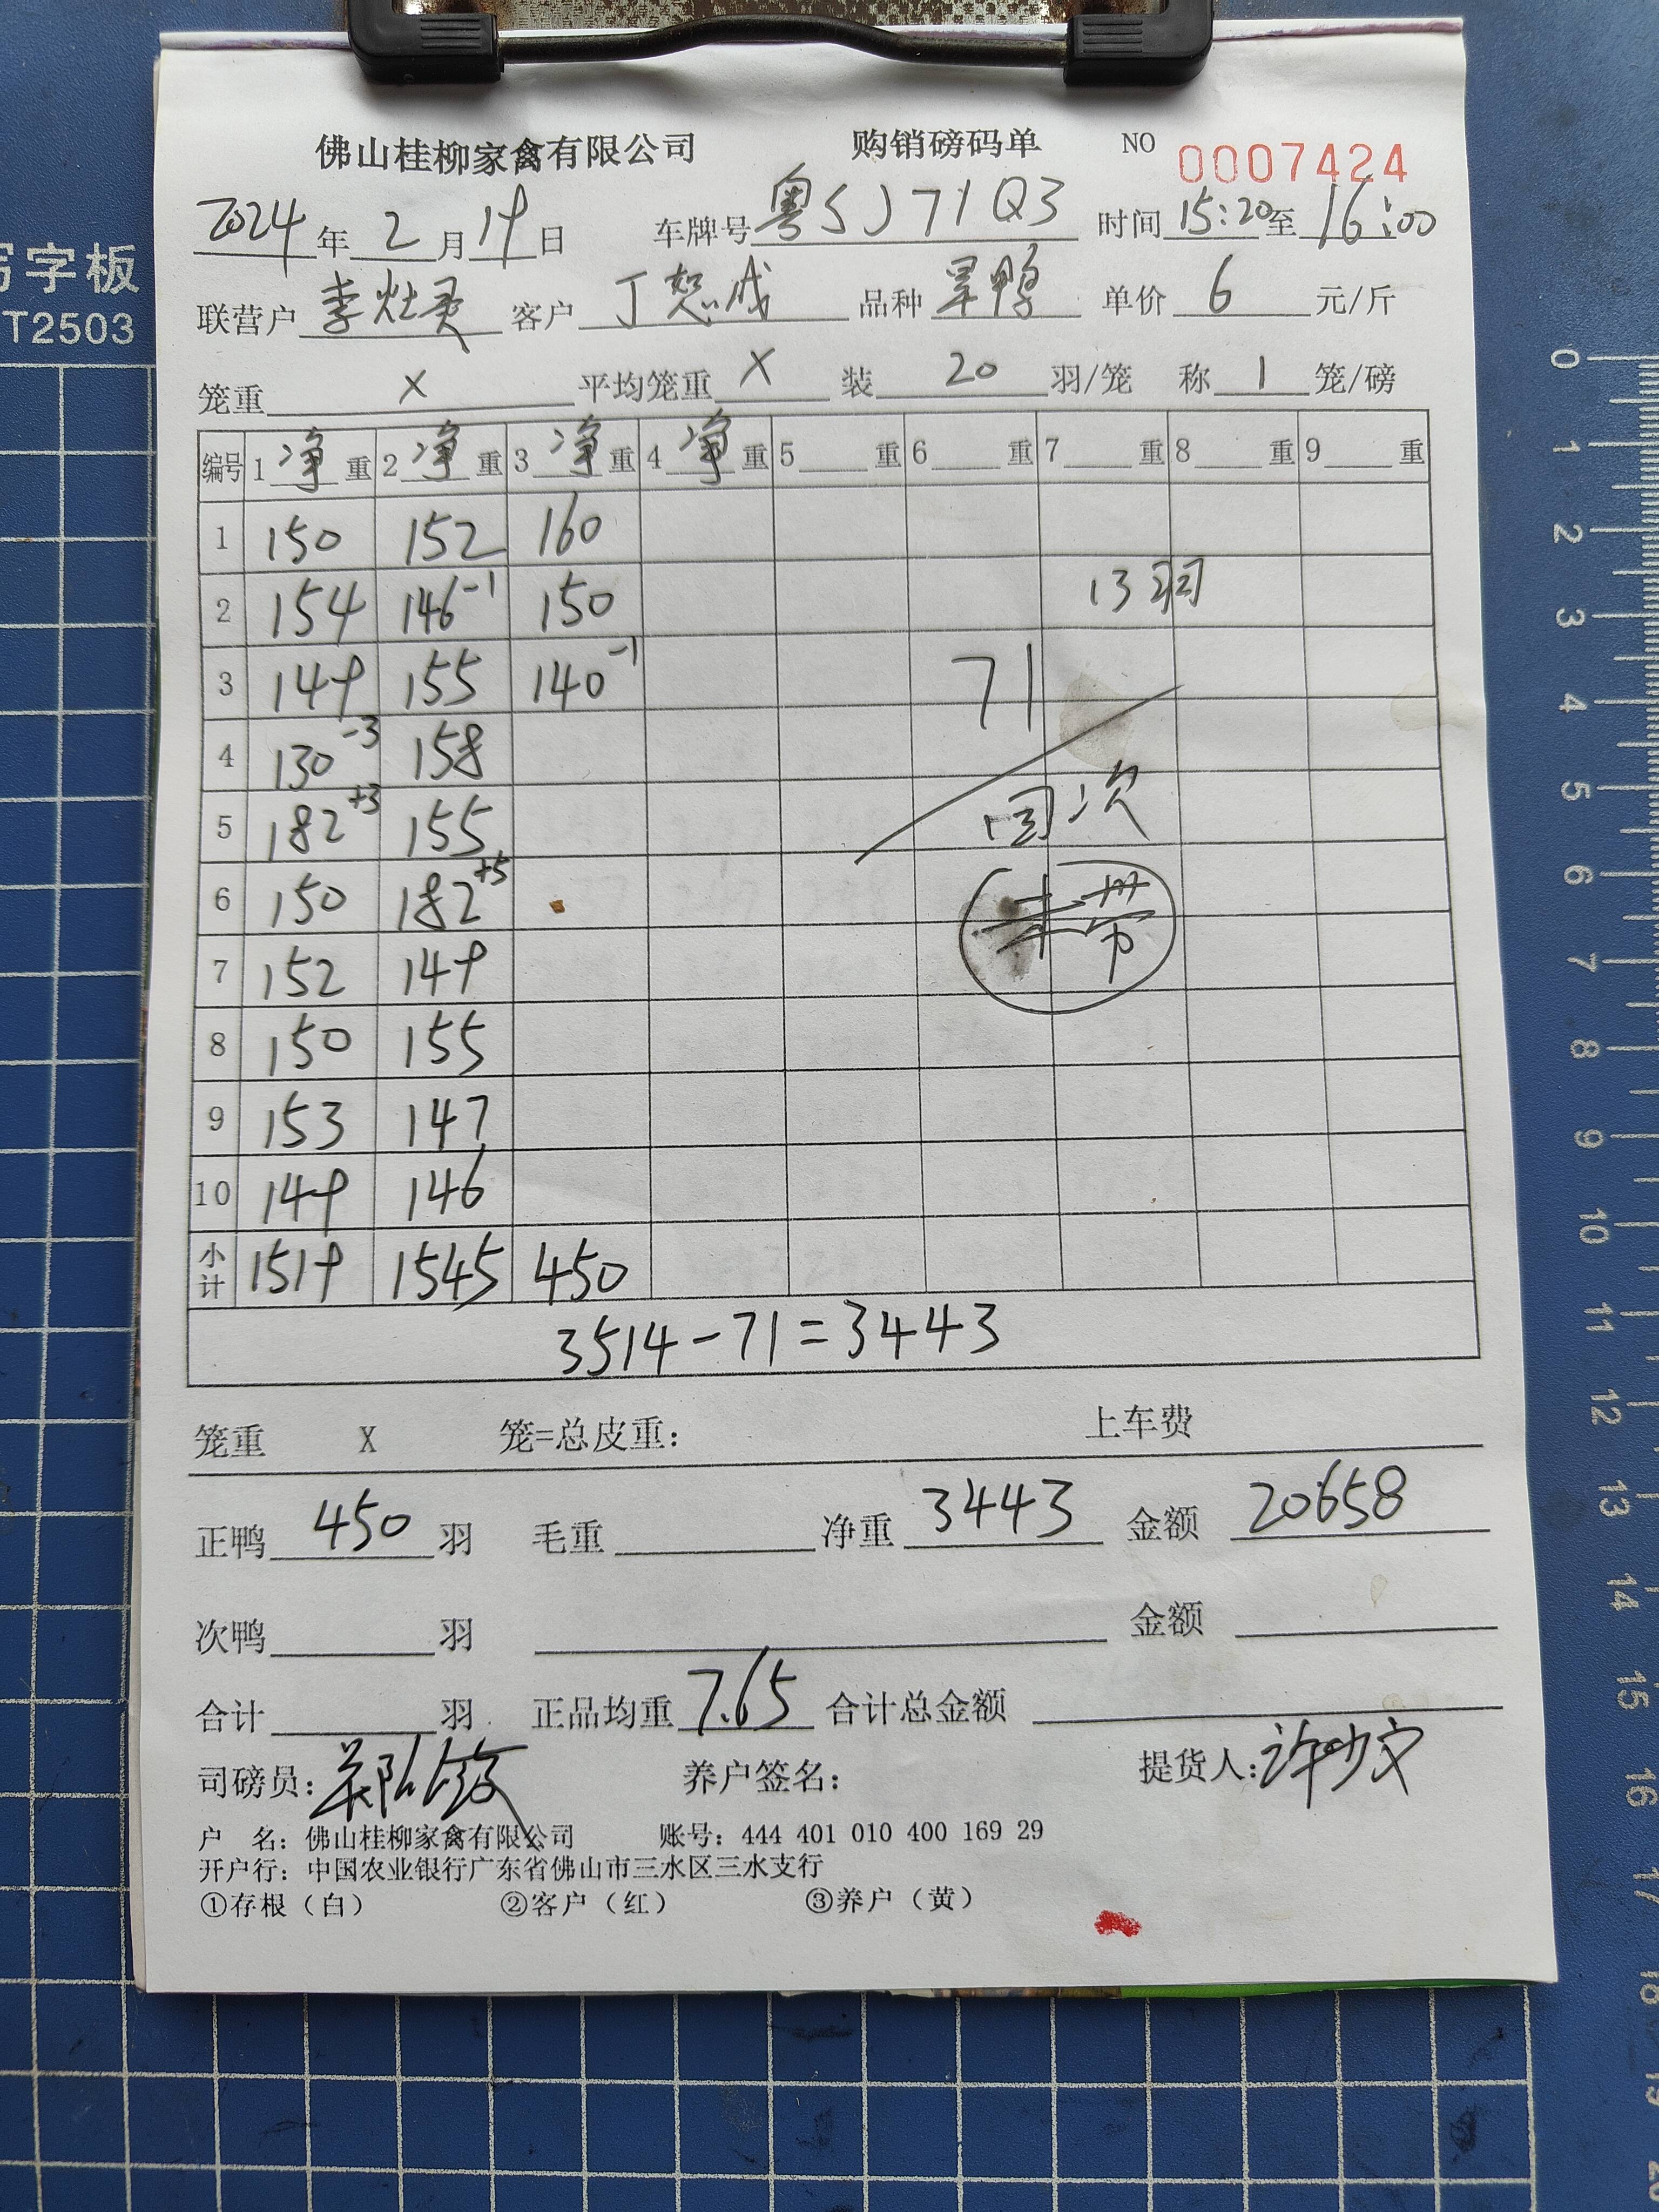 佛山桂柳家禽有限公司 购销磅码单 NO 0007424
2024年2月19日 车牌号 粤SJ71Q3 时间15:20至16:00
联营户 李灶 客户 丁 成 品种 旱鸭 单价 6 元/斤
笼重 X 平均笼重 X 装 20 羽/笼 称 1 笼/磅
编号 1 净 重 2 净 重 3 净 重 4 净 重 5 重 6 重 7 重 8 重 9 重
1 150 152 160
2 154 146-1 150 13羽
3 149 155 140-1 71
4 130-3 158
5 182+3 155 次
6 150 182+5 未带
7 152 149
8 150 155
9 153 147
10 149 146
小计 1519 1545 450
3514-71=3443
笼重 X 笼=总皮重: 上车费
正鸭 450 羽 毛重 净重 3443 金额 20658
次鸭 羽 金额
合计 羽 正品均重 7.65 合计总金额
司磅员: 养户签名: 提货人:许
户 名: 佛山桂柳家禽有限公司 账号: 444 401 010 400 169 29
开户行: 中国农业银行广东省佛山市三水区三水支行
①存根（白） ②客户（红） ③养户（黄）
写字板
T2503
0
1
2
3
4
5
6
7
8
9
10
11
12
13
14
15
16
17
18
19